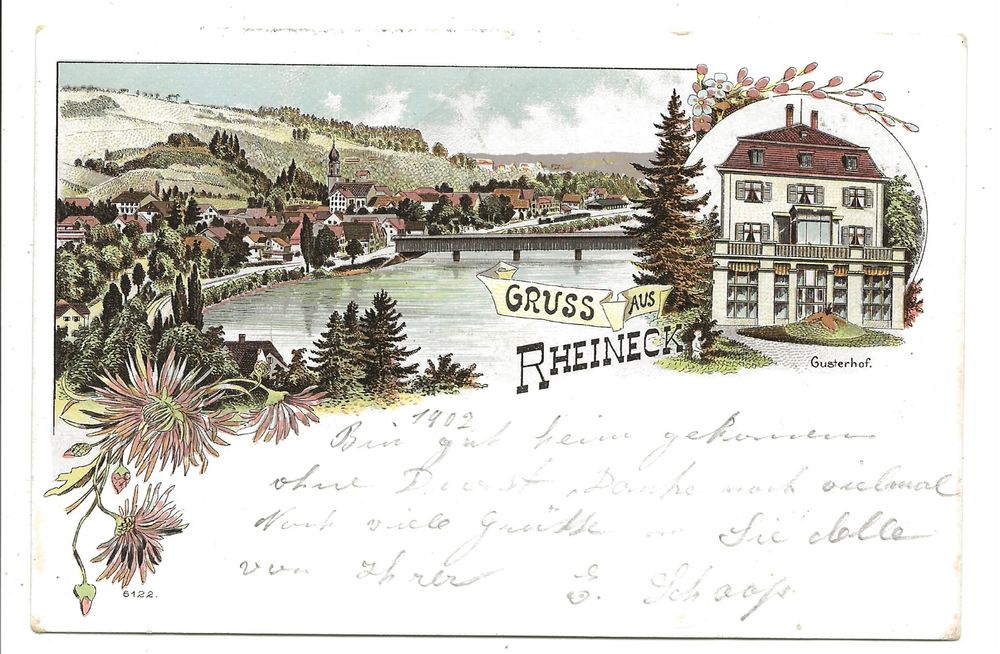 GRUSS AUS
RHEINECK
Gusterhof.
1902
Bin gut heim gekomen
ohne Durst, Danke noch vielmal
Noch viele Grüße an Sie Alle
von Ihrer E. Schoop
6122.